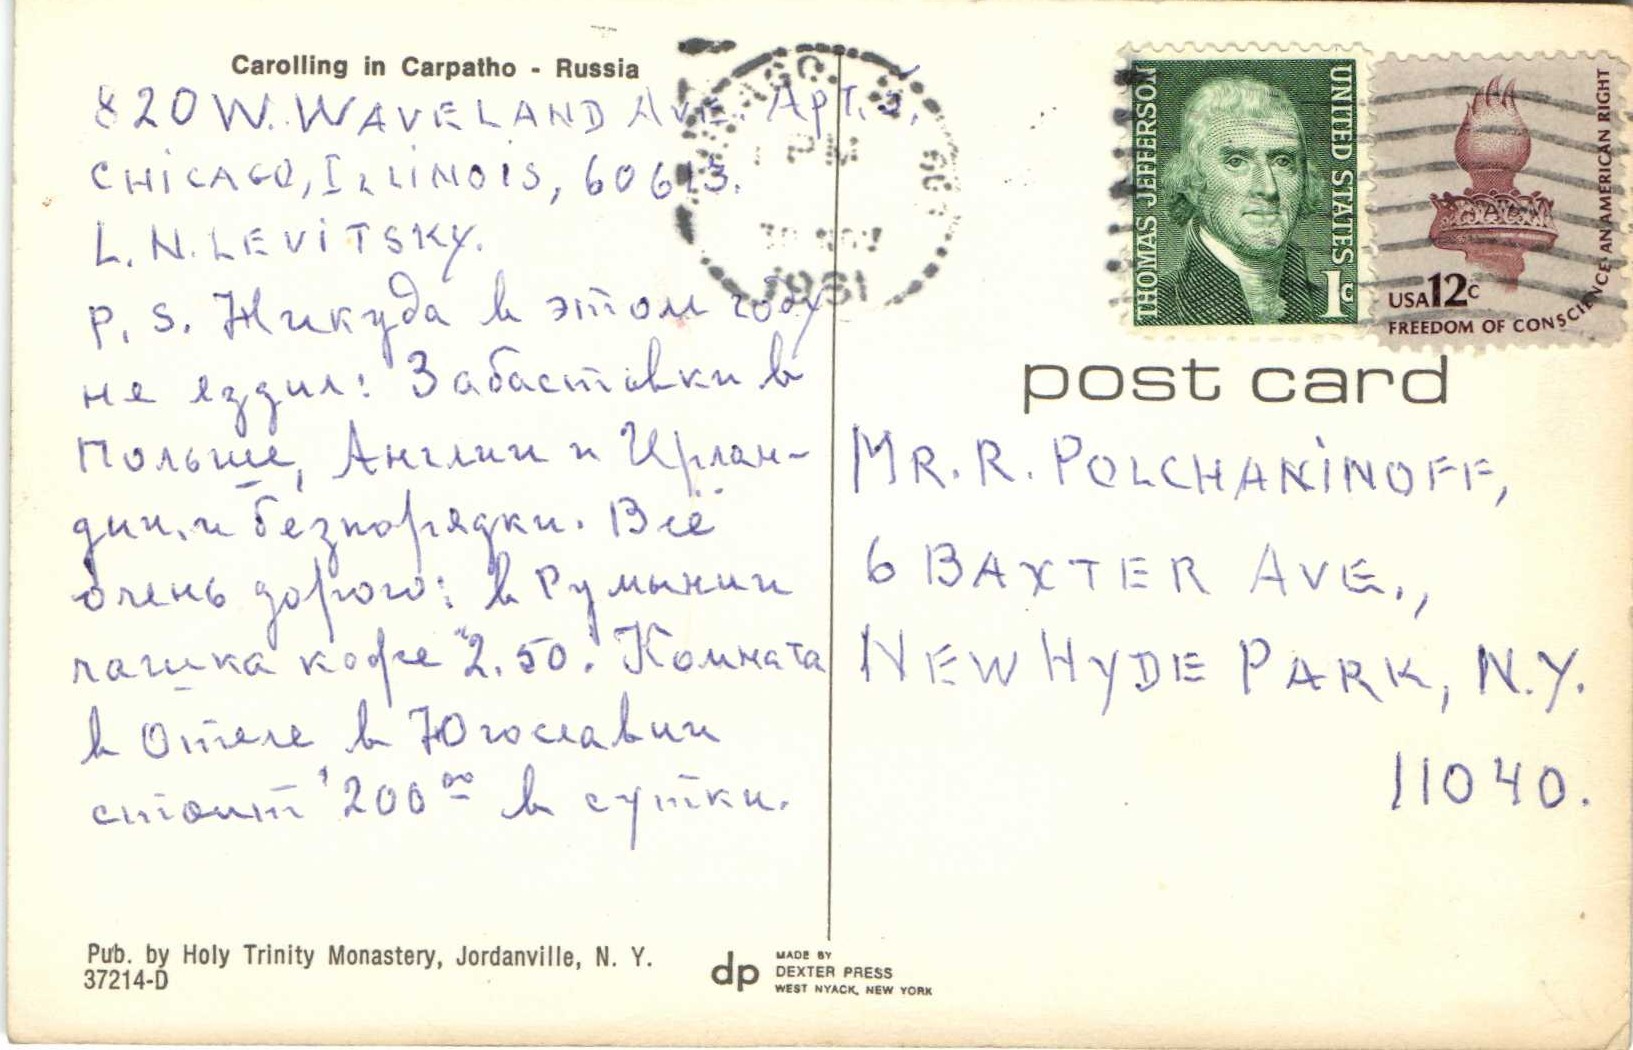 Carolling in Carpatho - Russia
820 W. WAVELAND AVE. APT. 2.
CHICAGO, ILLINOIS, 60613.
L. N. LEVITSKY.
P. S. Никуда в этом году
не ездил: Забастовки в
Польше, Англии и Ирлан-
дии, и безпорядки. Всё
очень дорого: в Румынии
чашка кофе 2.50. Комната
в Отеле в Югославии
стоит 200 00 в сутки.
Pub. by Holy Trinity Monastery, Jordanville, N. Y.
37214-D
dp
MADE BY
DEXTER PRESS
WEST NYACK, NEW YORK
PM
30 NOV
1981
THOMAS JEFFERSON
UNITED STATES
1c
USA 12c
FREEDOM OF CONSCIENCE-AN AMERICAN RIGHT
post card
MR. R. POLCHANINOFF,
6 BAXTER AVE.,
NEW HYDE PARK, N.Y.
11040.